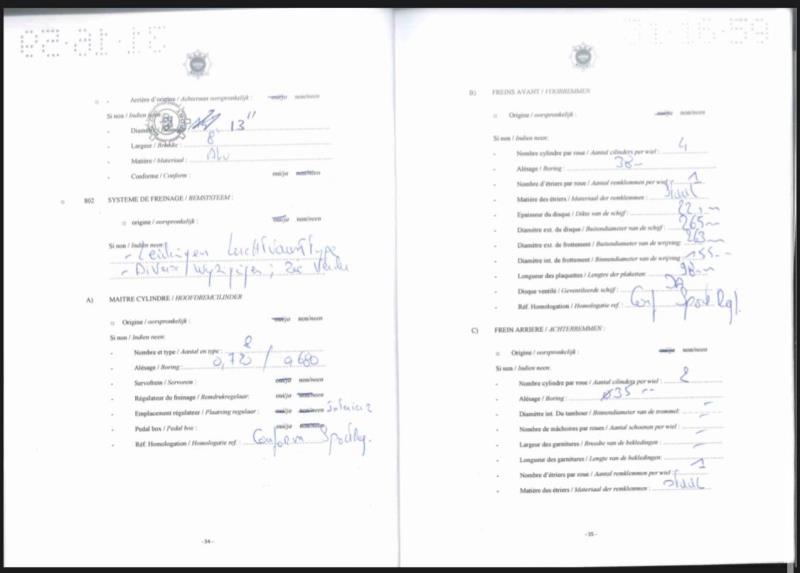 Arrière d'origine / Achteraan oorspronkelijk : oui/ja non/neen
Si non / Indien neen:
Diamètre 13"
Largeur / Breedte : 8
Matière / Materiaal : Alu
Conforme / Conform : oui/ja non/neen
802 SYSTEME DE FREINAGE / REMSYSTEEM :
o origine / oorspronkelijk : oui/ja non/neen
Si non / Indien neen:
- Leidingen Luchtvaart type
- Diverse wijzigingen ; zie verder
A) MAITRE CYLINDRE / HOOFDREMCILINDER
o Origine / oorspronkelijk : oui/ja non/neen
Si non / Indien neen:
- Nombre et type / Aantal en type : 2
- Alésage / Boring : 0,720 / 0,680
- Servofrein / Servorem : oui/ja non/neen
- Régulateur du freinage / Remdrukregelaar: oui/ja non/neen
- Emplacement régulateur / Plaatsing regelaar: oui/ja non/neen interieur
- Pedal box / Pedal box : oui/ja non/neen
- Réf. Homologation / Homologatie ref. : Conform Sportreg.
- 34 -
B) FREINS AVANT / VOORREMMEN
o Origine / oorspronkelijk : oui/ja non/neen
Si non / Indien neen:
- Nombre cylindre par roue / Aantal cilinders per wiel : 4
- Alésage / Boring : 38
- Nombre d'étriers par roue / Aantal remklommen per wiel : 1
- Matière des étriers / Materiaal der remklommen : staal
- Epaisseur du disque / Dikte van de schijf :
- Diamètre ext. du disque / Buitendiameter van de schijf : 265
- Diamètre ext. de frottement / Buitendiameter van de wrijving : 263
- Diamètre int. de frottement / Binnendiameter van de wrijving : 155
- Longueur des plaquettes / Lengte der plaketten : 98
- Disque ventilé / Geventileerde schijf : JA
- Réf. Homologation / Homologatie ref : Conf Sportregl.
C) FREIN ARRIERE / ACHTERREMMEN :
o Origine / oorspronkelijk : oui/ja non/neen
Si non / Indien neen:
- Nombre cylindre par roue / Aantal cilinders per wiel : 2
- Alésage / Boring : ø35
- Diamètre int. Du tambour / Binnendiameter van de trommel: -
- Nombre de mâchoires par roues / Aantal schoenen per wiel : -
- Largeur des garnitures / Breedte van de bekledingen : -
- Longueur des garnitures / Lengte van de bekledingen: -
- Nombre d'étriers par roue / Aantal remklommen per wiel : 1
- Matière des étriers / Materiaal der remklommen : staal
- 35 -